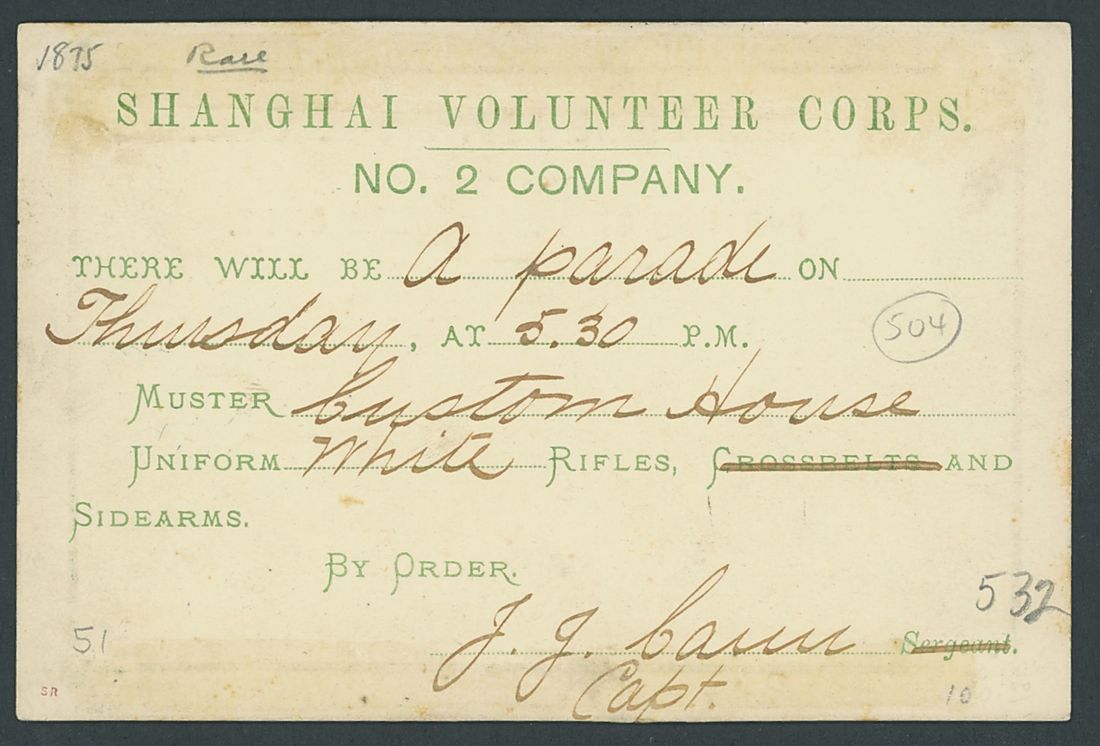 1875 Rare
SHANGHAI VOLUNTEER CORPS.
NO. 2 COMPANY.
THERE WILL BE A parade ON
Thursday, AT 5.30 P.M.
504
MUSTER Custom House
UNIFORM White RIFLES, CROSSBELTS AND
SIDEARMS.
BY ORDER.
532
51 J. J. Cann Sergeant.
Capt.
SR 10